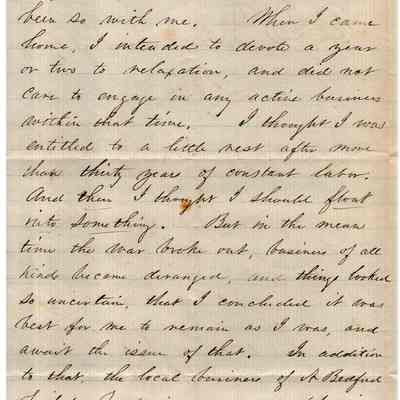 been so with me. When I came
home, I intended to devote a year
or two to relaxation, and did not
care to engage in any active business
within that time. I thought I was
entitled to a little rest after more
than thirty years of constant labor.
And then I thought I should float
into something. But in the mean
time the war broke out, business of all
kinds became deranged, and things looked
so uncertain, that I concluded it was
best for me to remain as I was, and
await the issue of that. In addition
to that, the local business of N. Bedford